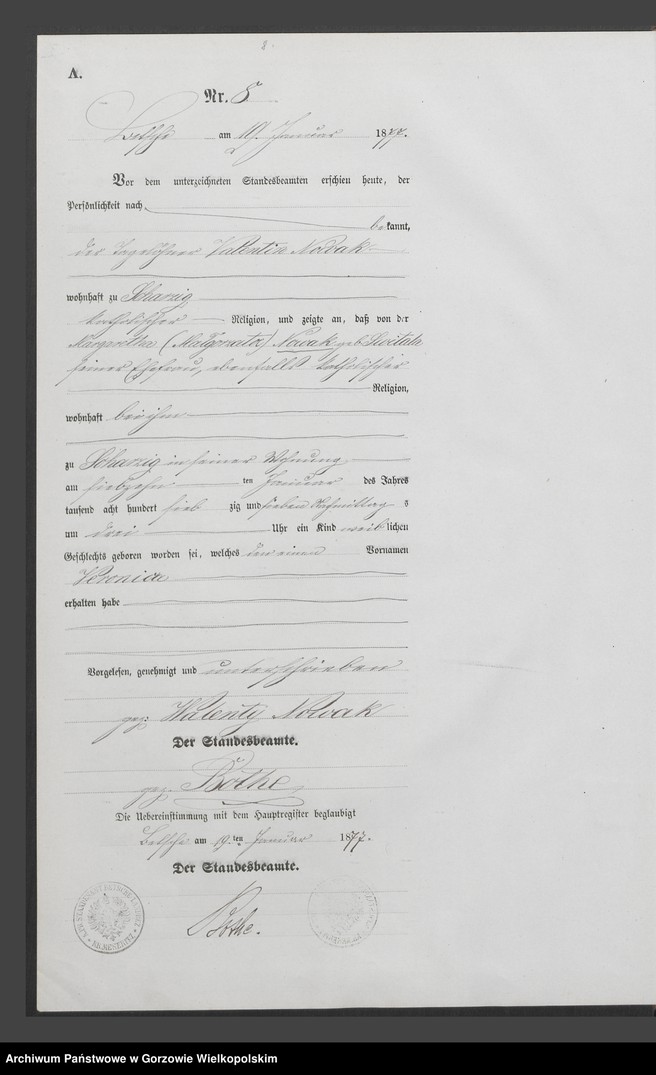 8.
A.
Nr. 8
Betsche am 19. Januar 1877.
Vor dem unterzeichneten Standesbeamten erschien heute, der
Persönlichkeit nach
bekannt,
der Tagelöhner Valentin Nowak
wohnhaft zu Scharzig
katholischer Religion, und zeigte an, daß von der
Margaretha (Malgorzata) Nowak geb.
seiner Ehefrau, ebenfalls katholischer
Religion,
wohnhaft bei ihm
zu Scharzig in seiner Wohnung
am siebzehn ten Januar des Jahres
tausend acht hundert sieb zig und sieben Nachmittag s
um drei Uhr ein Kind weib lichen
Geschlechts geboren worden sei, welches den einen Vornamen
Veronica
erhalten habe
Vorgelesen, genehmigt und unterschrieben
gez: Walenty Nowak
Der Standesbeamte.
gez. Böthe
Die Uebereinstimmung mit dem Hauptregister beglaubigt
Betsche am 19. ten Januar 1877.
Der Standesbeamte.
Böthe.
KR. MESERITZ
Archiwum Państwowe w Gorzowie Wielkopolskim